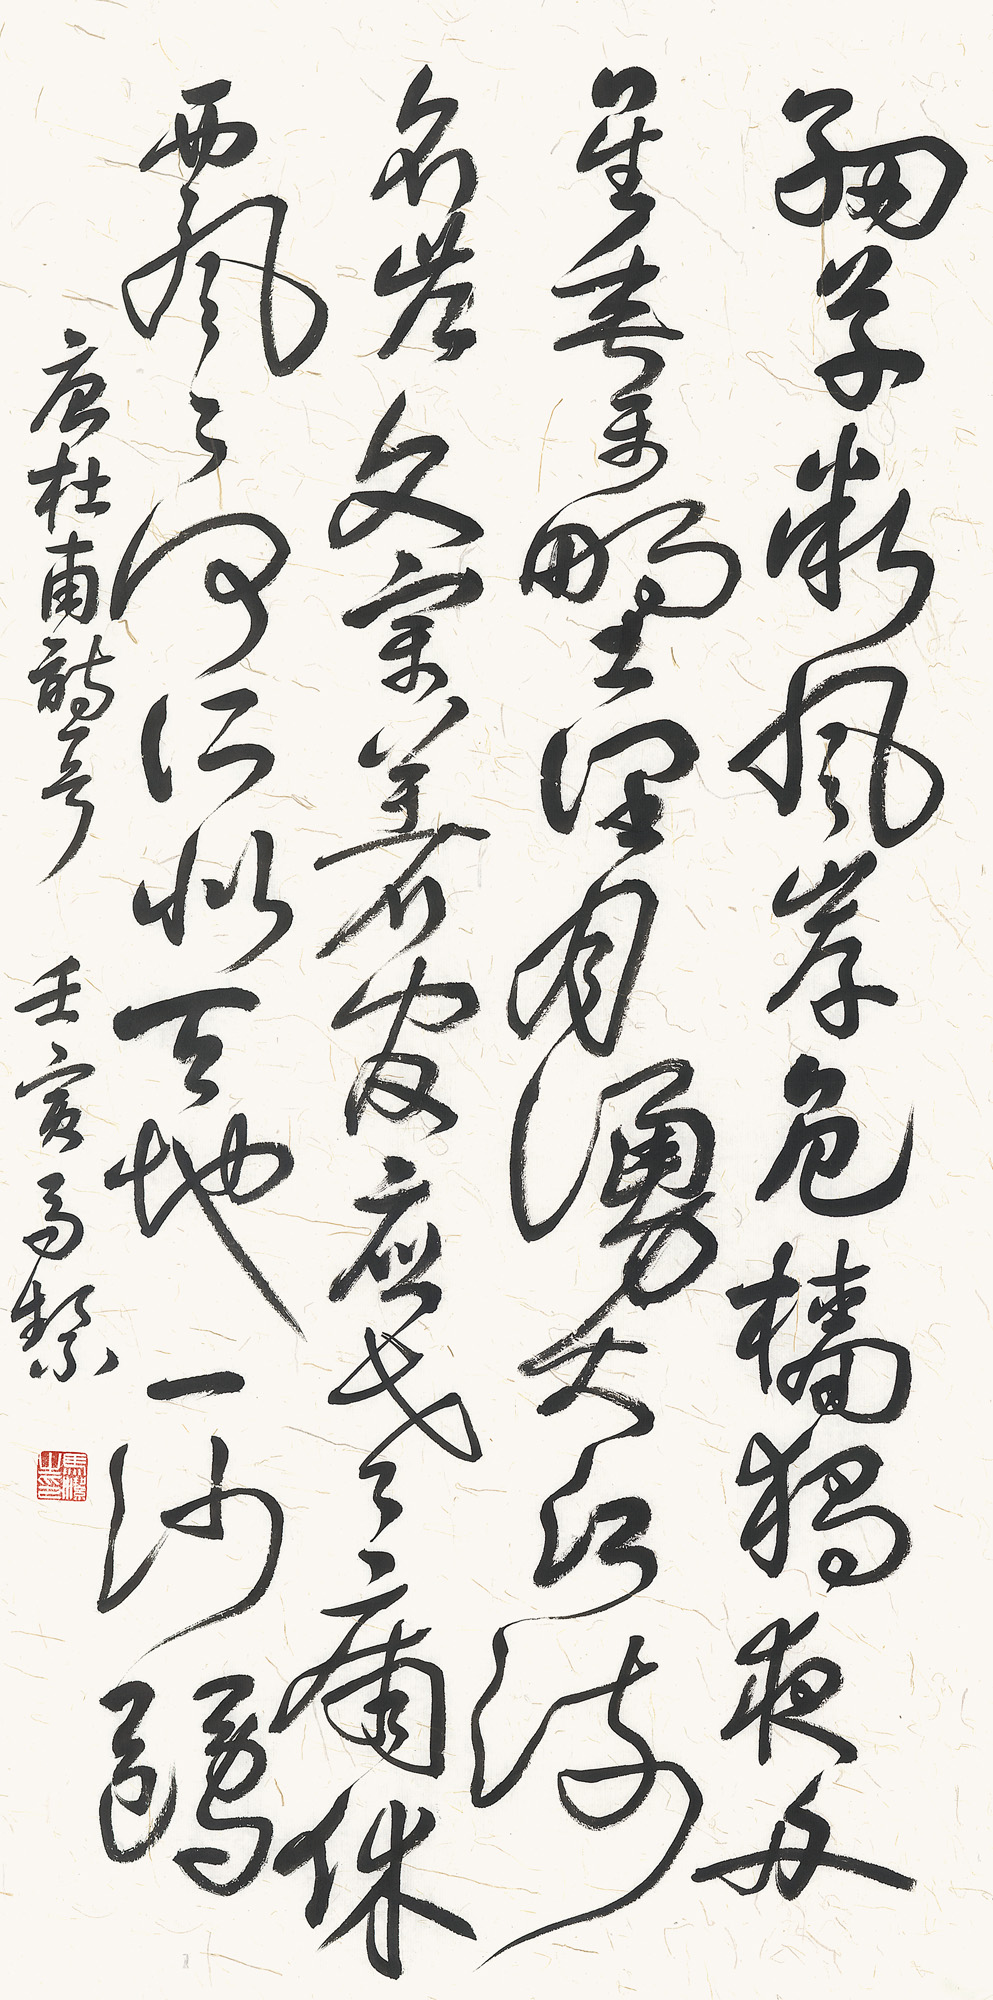 細草微風岸危檣獨夜舟
星垂平野濶月湧大江流
名豈文章著官應老病休
飄〻何所似天地一沙鷗
唐杜甫詩一首 壬寅馬絜